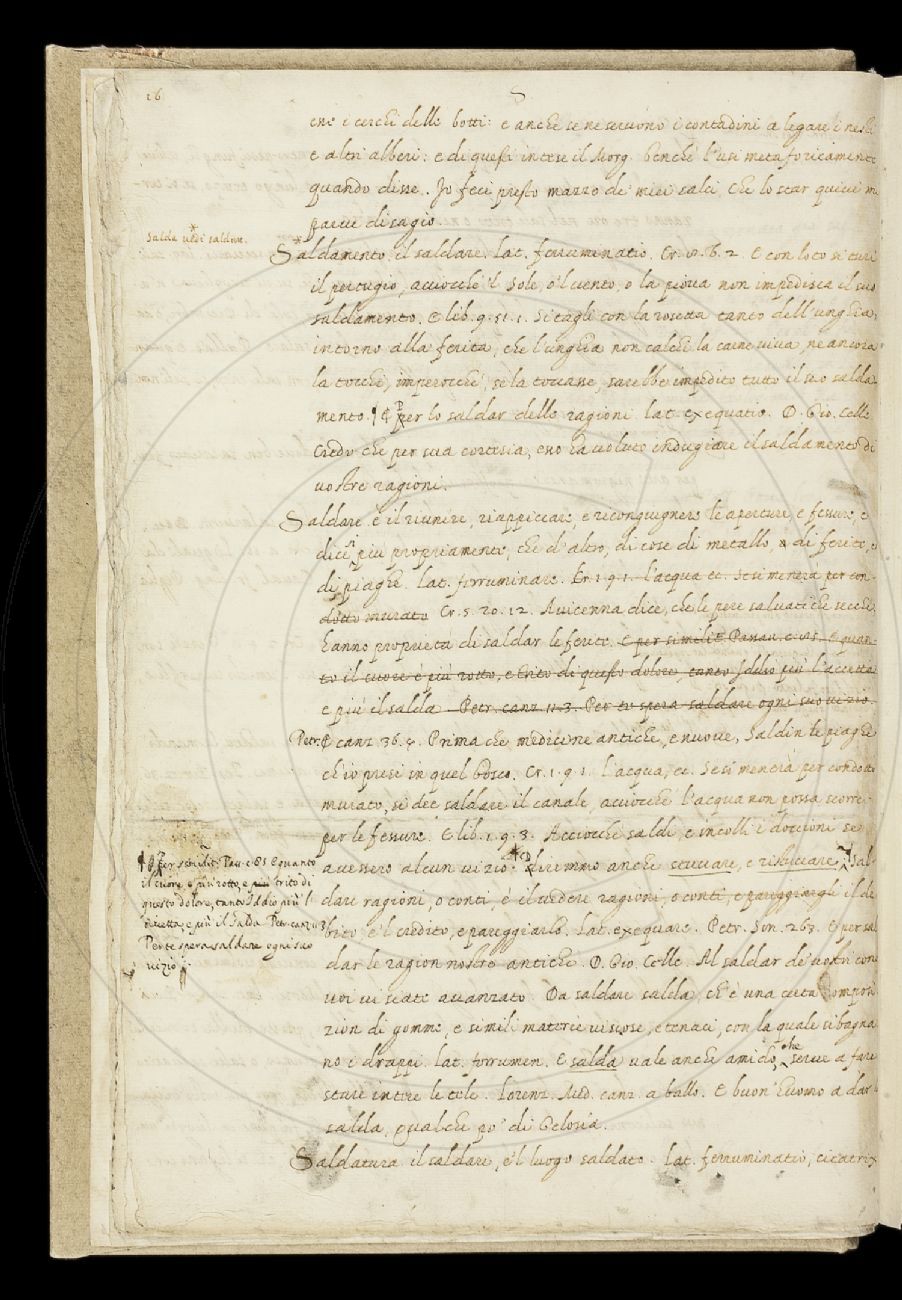 16
S
che i cerchi delle botti: e anche se ne servono i contadini a legare i nesti
e altri alberi: e di questi intese il Morg. benchè l'usi metaforicamente
quando disse. Jo feci presto mazzo de' miei salci, Che lo star quivi mi
parve disagio.
Salda vedi saldare.
Saldamento. il saldare. Lat. ferruminatio. Cr. 2. 6. 2. E con loto si turi
il pertugio, acciocchè 'l Sole, o 'l vento, o la piova non impedisca il suo
saldamento. E lib. 9. 51. 1. Si tagli con la rosetta tanto dell'unghia,
intorno alla ferita, che l'unghia non calchi la carne viva, ne ancora
la tocchi, imperocchè, se la toccasse, sarebbe impedito tutto il suo salda-
mento. ¶ E per lo saldar delle ragioni lat. exequatio. D. Gio. Celle
Credo che per sua cortesia, e' no ha voluto indugiare il saldamento di
vostre ragioni.
Saldare. è il riunire, riappiccare, e ricongiugnere le aperture, e fessure, e
dicesi più propriamente, che d'altro, di cose di metallo, di ferite, e
di piaghe. Lat. ferruminare. Cr. 1. 9. 1. l'acqua ec. Se si menerà per con-
dotto murato Cr. 5. 20. 12. Avicenna dice, che le pere salvatiche secche
hanno proprietà di saldar le ferite. E per similit. Panau. c. 85. E quan-
to il cuore è più rotto, e trito di questo dolore, tanto Iddio più l'accetta
e più il salda Petr. canz. 11. 3. Per te spera saldare ogni suo vizio.
Petr. canz. 36. 5. Prima che medicine antiche, e nuove, Saldin le piaghe
ch'io presi in quel bosco. Cr. 1. 9. 1. l'acqua, ec. Se si menerà per condotto
murato, si dee saldare il canale, acciocchè l'acqua non possa scorrer
per le fessure. E lib. 1. 9. 3. Acciocchè saldi e incolli i doccioni se
avessero alcun vizio. Diremmo anche stuccare, e ristuccare. Sal-
dare ragioni, o conti, è il vedere ragioni, o conti, e pareggiargli il de
bito e 'l credito, e pareggiarlo. Lat. exequare. Petr. Son. 267. E per sal
dar le ragion nostre antiche. D. Gio. Celle. Al saldar de' vostri con
voi vi siate avanzato. Da saldare salda, ch'è una certa composi
zion di gomme, e simili materie viscose, e tenaci, con la quale si bagna
no i drappi. lat. ferrumen. E salda vale anche amido, che serve a fare
stare intire le tele. Lorenz. Med. canz. a ballo. E buon' huomo a dar
salda, qualche po' di Gelosia.
¶ E per similit. Pau. c. 85 E quanto
il cuore è più rotto, e più trito di
questo dolore, tanto Iddio più l'
accetta, e più il salda Petr. canz. 11. 3
Per te spera saldare ogni suo
vizio.
Saldatura il saldare, e 'l luogo saldato. Lat. ferruminatio, cicatrix